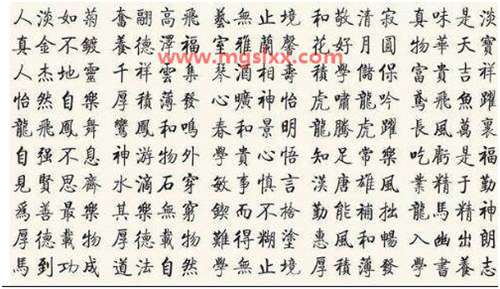 人淡如菊 奮翮高飛 藝無止境 和敬清寂 真味是淡
真金不鍍 養德澤福 室雅蘭馨 花好月圓 物華天寶
www.mgslxx.com
人杰地靈 千祥雲集 酒相壽 積學儲 富貴吉祥
怡然自樂 厚積薄發 心曠神怡 虎嘯龍吟 鳶飛魚躍
龍飛鳳舞 鸞鳳和鳴 春和景明 龍騰虎躍 長風萬裏
自强不息 神游物外 學貴心悟 知足常樂 吃虧是福
見賢思齊 水滴石穿 敏事慎言 漢唐雄風 業精于勤
爲善最樂 其樂無窮 鍥而不捨 勤能補拙 龍馬精神
厚德載物 厚德載物 難得糊塗 惠風和暢 入幽出朗
馬到功成 道法自然 學無止境 厚積薄發 學書養志